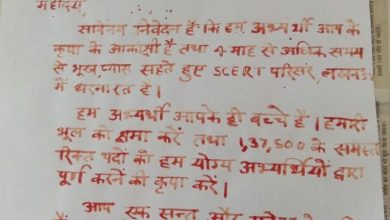 महोदय,
सविनय निवेदन है कि हम अभ्यर्थी आप के
कृपा के आकांक्षी हैं तथा 4 माह से अधिक समय
से भूख, प्यास सहते हुए SCERT परिसर, लखनऊ
में धरनारत हैं।
हम अभ्यर्थी आपके ही बच्चे हैं। हमारी
भूल को क्षमा करें तथा 1,37,500 के समस्त
रिक्त पदों को हम योग्य अभ्यर्थियों द्वारा
पूर्ण करने की कृपा करें।
आप एक सन्त और